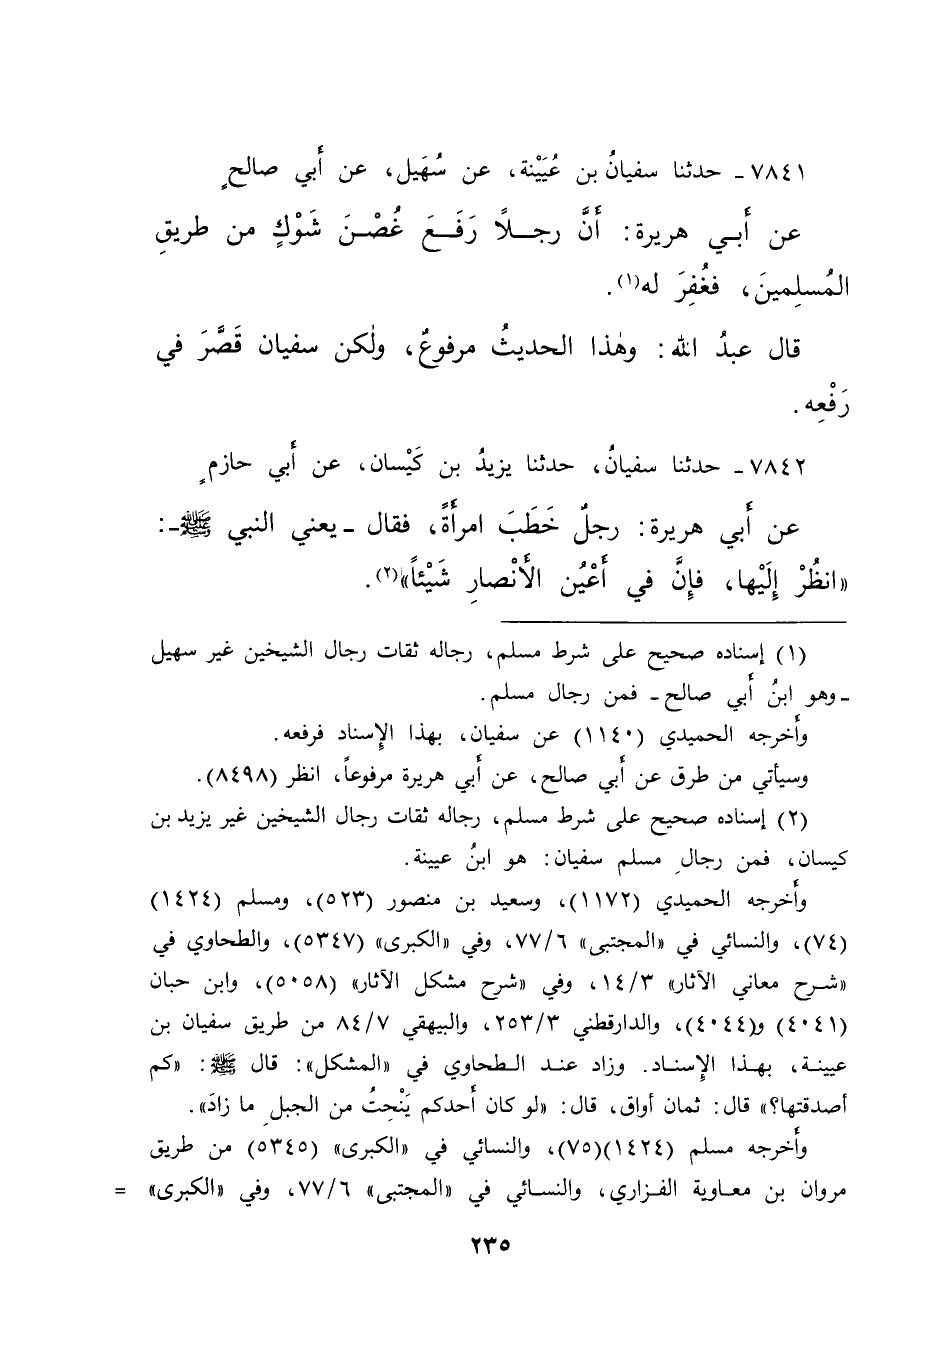 ٧٨٤١ ـ حدثنا سفيانُ بن عُيَيْنة، عن سُهَيل، عن أَبي صالحٍ
عن أَبـي هريرة: أَنَّ رجـلاً رَفَـعَ غُصْـنَ شَوْكٍ من طريقِ
المُسلِمينَ، فغُفِرَ له(١).
قال عبدُ الله: وهٰذا الحديثُ مرفوعٌ، ولٰكن سفيان قَصَّرَ في
رَفْعِه.
٧٨٤٢ ـ حدثنا سفيانُ، حدثنا يزيدُ بن كَيْسان، عن أَبي حازمٍ
عن أَبي هريرة: رجلٌ خَطَبَ امرأَةً، فقال ـ يعني النبي ﷺ ـ:
«انظُرْ إِلَيْها، فإِنَّ في أَعْيُن الأَنْصارِ شَيْئاً»(٢).
(١) إسناده صحيح على شرط مسلم، رجاله ثقات رجال الشيخين غير سهيل
ـ وهو ابنُ أَبي صالح ـ فمن رجال مسلم.
وأَخرجه الحميدي (١١٤٠) عن سفيان، بهذا الإِسناد فرفعه.
وسيأتي من طرق عن أَبي صالح، عن أَبي هريرة مرفوعاً، انظر (٨٤٩٨).
(٢) إسناده صحيح على شرط مسلم، رجاله ثقات رجال الشيخين غير يزيد بن
كيسان، فمن رجالِ مسلم سفيان: هو ابنُ عيينة.
وأَخرجه الحميدي (١١٧٢)، وسعيد بن منصور (٥٢٣)، ومسلم (١٤٢٤)
(٧٤)، والنسائي في «المجتبى» ٧٧/٦، وفي «الكبرى» (٥٣٤٧)، والطحاوي في
«شـرح معاني الآثار» ١٤/٣، وفي «شرح مشكل الآثار» (٥٠٥٨)، وابن حبان
(٤٠٤١) و(٤٠٤٤)، والدارقطني ٢٥٣/٣، والبيهقي ٨٤/٧ من طريق سفيان بن
عيينـة، بهـذا الإِسنـاد. وزاد عنـد الـطحاوي في «المشكل»: قال ﷺ: «كم
أصدقتها؟» قال: ثمان أواق، قال: «لو كان أَحدكم يَنْحِتُ من الجبلِ ما زادَ».
وأَخرجه مسلم (١٤٢٤)(٧٥)، والنسائي في «الكبرى» (٥٣٤٥) من طريق
مروان بن معـاوية الفـزاري، والنسـائي في «المجتبى» ٧٧/٦، وفي «الكبرى» =
٢٣٥